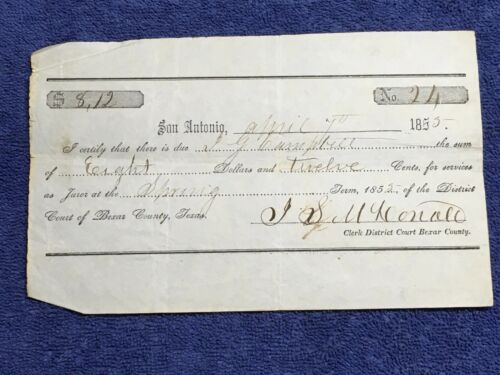 $ 8,12 No. 24
San Antonio, April 7th 1855.
I certify that there is due J. J. Campbell the sum
of Eight Dollars and twelve Cents, for services
as Juror at the Spring Term, 1855. of the District
Court of Bexar County, Texas. J McDonald
Clerk District Court Bexar County.